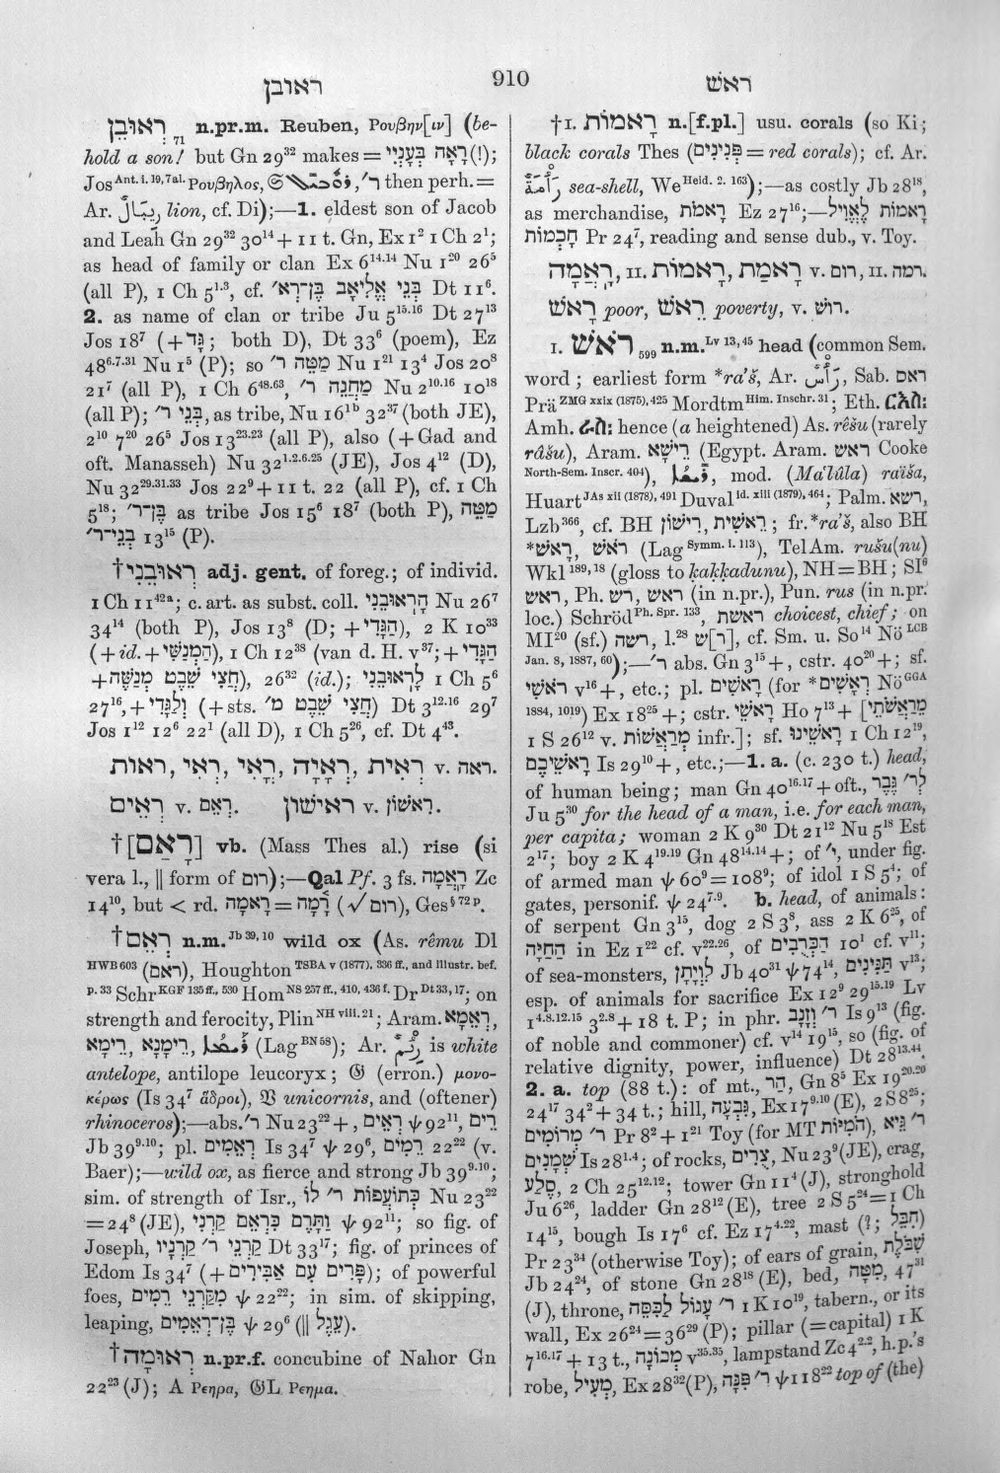 ראובן
910
ראשׁ
רְאוּבֵן 71 n.pr.m. Reuben, Ρουβην[ιν] (be-
hold a son! but Gn 29³² makes = רָאָה בְּעָנְיִי (!);
Jos Ant. i. 19, 7 al. Ρουβηλος, then perh. =
Ar. lion, cf. Di);—1. eldest son of Jacob
and Leah Gn 29³² 30¹⁴ + 11 t. Gn, Ex 1² 1 Ch 2¹;
as head of family or clan Ex 6¹⁴·¹⁴ Nu 1²⁰ 26⁵
(all P), 1 Ch 5¹·³, cf. בְּנֵי אֱלִיאָב בֶּן־רְא׳ Dt 11⁶.
2. as name of clan or tribe Ju 5¹⁵·¹⁶ Dt 27¹³
Jos 18⁷ (+ גָּד; both D), Dt 33⁶ (poem), Ez
48⁶·⁷·³¹ Nu 1⁵ (P); so מַטֵּה ר׳ Nu 1²¹ 13⁴ Jos 20⁸
21⁷ (all P), 1 Ch 6⁴⁸·⁶³, מַחֲנֵה ר׳ Nu 2¹⁰·¹⁶ 10¹⁸
(all P); בְּנֵי ר׳, as tribe, Nu 16¹ᵇ 32³⁷ (both JE),
2¹⁰ 7²⁰ 26⁵ Jos 13²³·²³ (all P), also (+ Gad and
oft. Manasseh) Nu 32¹·²·⁶·²⁵ (JE), Jos 4¹² (D),
Nu 32²⁹·³¹·³³ Jos 22⁹ + 11 t. 22 (all P), cf. 1 Ch
5¹⁸; בֶּן־ר׳ as tribe Jos 15⁶ 18⁷ (both P), מַטֵּה
בְּנֵי־ר׳ 13¹⁵ (P).
†רְאוּבֵנִי adj. gent. of foreg.; of individ.
1 Ch 11⁴²ᵃ; c. art. as subst. coll. הָרְאוּבֵנִי Nu 26⁷
34¹⁴ (both P), Jos 13⁸ (D; + הַגָּדִי), 2 K 10³³
(+ id. + הַמְנַשִּׁי), 1 Ch 12³⁸ (van d. H. v³⁷; + הַגָּדִי
+ חֲצִי שֵׁבֶט מְנַשֶּׁה), 26³² (id.); לָראוּבֵנִי 1 Ch 5⁶
27¹⁶, + וְלַגָּדִי (+ sts. חֲצִי שֵׁבֶט מ׳) Dt 3¹²·¹⁶ 29⁷
Jos 1¹² 12⁶ 22¹ (all D), 1 Ch 5²⁶, cf. Dt 4⁴³.
רַאֲוָה, רְאוּת, רֳאִי, רְאִי, רְאָיָה, רְאִית v. ראה.
רֵאִים v. רְאֵם. רִאישׁוֹן v. רִאשׁוֹן.
†[רָאַם] vb. (Mass Thes al.) rise (si
vera l., ‖ form of רום);—Qal Pf. 3 fs. רָאֲמָה Zc
14¹⁰, but < rd. רָאמָה = רָמָה (√ רום), Ges§ 72 p.
†רְאֵם n.m. Jb 39, 10 wild ox (As. rêmu Dl
HWB 603 (ראם), Houghton TSBA v (1877), 336 ff., and illustr. bef.
p. 33 Schr KGF 135 ff., 530 Hom NS 257 ff., 410, 436 f. Dr Dt 33, 17; on
strength and ferocity, Plin NH viii. 21; Aram. רֵאמָא,
רֵימָא, רֵימָנָא, רֵימָא (Lag BN 58); Ar. is white
antelope, antilope leucoryx; 𝔊 (erron.) μονο-
κέρως (Is 34⁷ ἁδροι), 𝔙 unicornis, and (oftener)
rhinoceros);—abs. ר׳ Nu 23²² +, רְאֵים ψ 92¹¹, רֵים
Jb 39⁹·¹⁰; pl. רְאֵמִים Is 34⁷ ψ 29⁶, רֵמִים 22²² (v.
Baer);—wild ox, as fierce and strong Jb 39⁹·¹⁰;
sim. of strength of Isr., כְּתוֹעֲפוֹת ר׳ לוֹ Nu 23²²
= 24⁸ (JE), וַתָּרֶם כִּרְאֵם קַרְנִי ψ 92¹¹; so fig. of
Joseph, קַרְנֵי ר׳ קַרְנָיו Dt 33¹⁷; fig. of princes of
Edom Is 34⁷ (+ פָּרִים עִם אַבִּירִים); of powerful
foes, מִקַּרְנֵי רֵמִים ψ 22²²; in sim. of skipping,
leaping, בֶּן־רְאֵמִים ψ 29⁶ (‖ עֵגֶל).
†רְאוּמָה n.pr.f. concubine of Nahor Gn
22²³ (J); A Ρεηρα, 𝔊L Ρεημα.
†I. רָאמוֹת n.[f.pl.] usu. corals (so Ki;
black corals Thes (פְּנִינִים = red corals); cf. Ar.
sea-shell, We Heid. 2. 163);—as costly Jb 28¹⁸,
as merchandise, רָאמֹת Ez 27¹⁶;— רָאמוֹת לֶאֱוִיל
חָכְמוֹת Pr 24⁷, reading and sense dub., v. Toy.
רָאֲמָה, II. רָאמוֹת, רָאמַת v. רום, II. רמה.
רָאשׁ poor, רֵאשׁ poverty, v. רושׁ.
I. רֹאשׁ 599 n.m. Lv 13, 45 head (common Sem.
word; earliest form *ra'š, Ar. رَأْس, Sab. ראס
Prä ZMG xxix (1875), 425 Mordtm Him. Inschr. 31; Eth. ርእስ:
Amh. ራስ: hence (a heightened) As. rêšu (rarely
râšu), Aram. רֵישָׁא (Egypt. Aram. ראשׁ Cooke
North-Sem. Inscr. 404), mod. (Ma'lûla) raiša,
Huart JAs xii (1878), 491 Duval id. xiii (1879), 464; Palm. רשא,
Lzb 366, cf. BH רִישׁוֹן, רֵאשִׁית; fr. *ra'š, also BH
*רָאשׁ, רֹאשׁ (Lag Symm. i. 113), Tel Am. rušu(nu)
Wkl 189, 18 (gloss to ḳaḳḳadunu), NH = BH; SI⁶
ראשׁ, Ph. ראשׁ, רשׁ (in n.pr.), Pun. rus (in n.pr.
loc.) Schröd Ph. Spr. 133, ראשת choicest, chief; on
MI²⁰ (sf.) רשה, l.²⁸ ר]שׁ], cf. Sm. u. So 14 Nö LCB
Jan. 8, 1887, 60);—ר׳ abs. Gn 3¹⁵ +, cstr. 40²⁰ +; sf.
רֹאשִׁי v¹⁶ +, etc.; pl. רָאשִׁים (for *רְאָשִׁים Nö GGA
1884, 1019) Ex 18²⁵ +; cstr. רָאשֵׁי Ho 7¹³ + [מְרַאֲשֹׁתֵי
1 S 26¹² v. מְרַאֲשׁוֹת infr.]; sf. רָאשֵׁינוּ 1 Ch 12¹⁹,
רָאשֵׁיכֶם Is 29¹⁰ +, etc.;—1. a. (c. 230 t.) head,
of human being; man Gn 40¹⁶·¹⁷ + oft., לְר׳ גֶּבֶר
Ju 5³⁰ for the head of a man, i.e. for each man,
per capita; woman 2 K 9³⁰ Dt 21¹² Nu 5¹⁸ Est
2¹⁷; boy 2 K 4¹⁹·¹⁹ Gn 48¹⁴·¹⁴ +; of י׳, under fig.
of armed man ψ 60⁹ = 108⁹; of idol 1 S 5⁴; of
gates, personif. ψ 24⁷·⁹. b. head, of animals:
of serpent Gn 3¹⁵, dog 2 S 3⁸, ass 2 K 6²⁵, of
הַחַיָּה in Ez 1²² cf. v²²·²⁶, of הַכְּרֻבִים 10¹ cf. v¹¹;
of sea-monsters, לִוְיָתָן Jb 40³¹ ψ 74¹⁴, תַּנִּינִים v¹³;
esp. of animals for sacrifice Ex 12⁹ 29¹⁵·¹⁹ Lv
1⁴·⁸·¹²·¹⁵ 3²·⁸ + 18 t. P; in phr. ר׳ וְזָנָב Is 9¹³ (fig.
of noble and commoner) cf. v¹⁴ 19¹⁵, so (fig. of
relative dignity, power, influence) Dt 28¹³·⁴⁴.
2. a. top (88 t.): of mt., הַר, Gn 8⁵ Ex 19²⁰·²⁰
24¹⁷ 34² + 34 t.; hill, גִּבְעָה, Ex 17⁹·¹⁰ (E), 2 S 8²⁵;
ר׳ מְרוֹמִים Pr 8² + 1²¹ Toy (for MT הֹמִיּוֹת), ר׳ גֵּיא
שְׁמָנִים Is 28¹·⁴; of rocks, צֻרִים, Nu 23⁹ (JE), crag,
סֶלַע, 2 Ch 25¹²·¹²; tower Gn 11⁴ (J), stronghold
Ju 6²⁶, ladder Gn 28¹² (E), tree 2 S 5²⁴ = 1 Ch
14¹⁵, bough Is 17⁶ cf. Ez 17⁴·²², mast (?; חִבֵּל)
Pr 23³⁴ (otherwise Toy); of ears of grain, שִׁבֹּלֶת
Jb 24²⁴, of stone Gn 28¹⁸ (E), bed, מִטָּה, 47³¹
(J), throne, ר׳ עָגוֹל לַכִּסֵּה 1 K 10¹⁹, tabern., or its
wall, Ex 26²⁴ = 36²⁹ (P); pillar (= capital) 1 K
7¹⁶·¹⁷ + 13 t., מְכוֹנָה v³⁵·³⁵, lampstand Zc 4²·², h.p.'s
robe, מְעִיל, Ex 28³² (P), ר׳ פִּנָּה ψ 118²² top of (the)